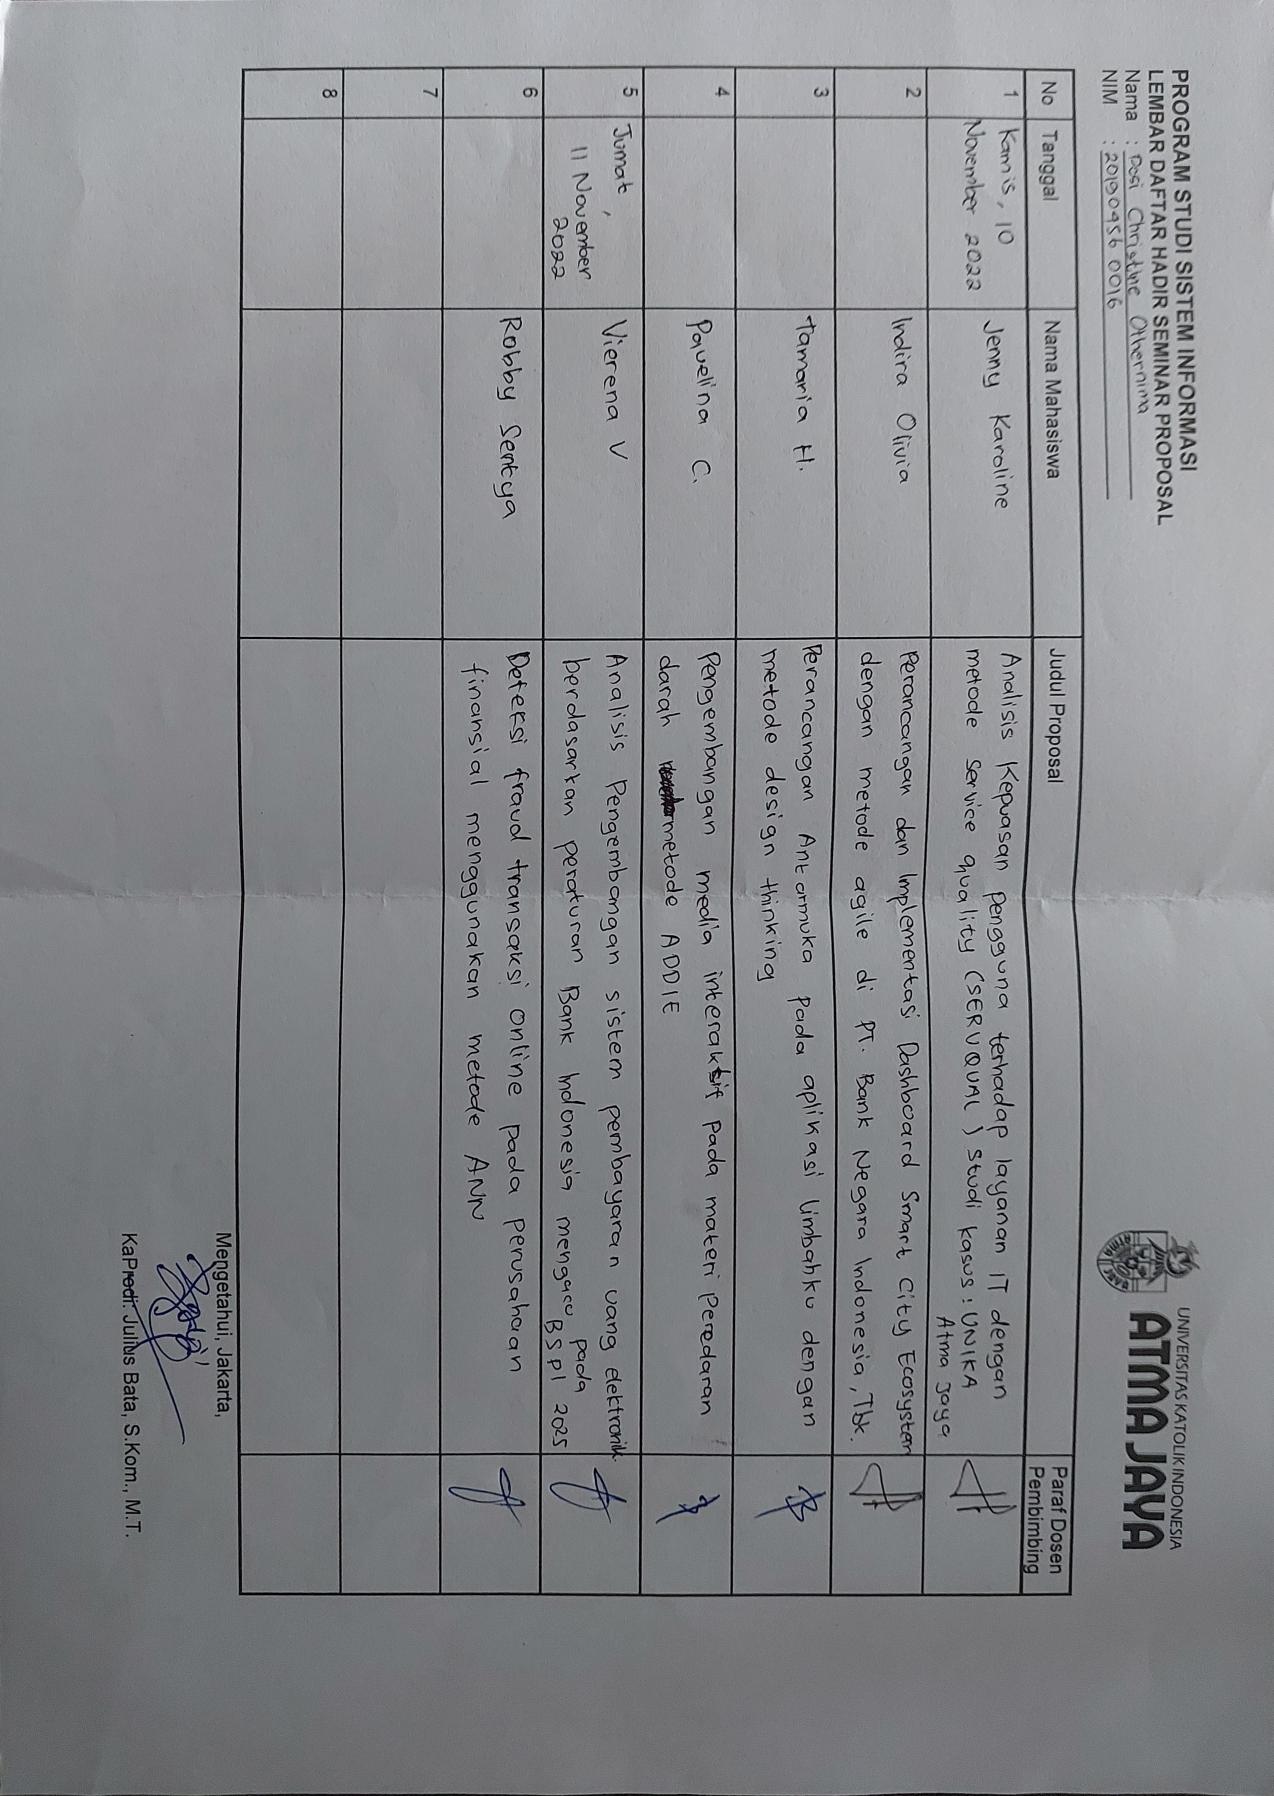 PROGRAM STUDI SISTEM INFORMASI
LEMBAR DAFTAR HADIR SEMINAR PROPOSAL
Nama : Desi Christine Othernima
NIM : 20190456 0016
UNIVERSITAS KATOLIK INDONESIA
ATMA JAYA
No Tanggal Nama Mahasiswa Judul Proposal Paraf Dosen
Pembimbing
1 Kamis, 10 Jenny Karoline Analisis Kepuasan pengguna terhadap layanan IT dengan
November 2022 metode service quality (SERVQUAL) Studi kasus : UNIKA
Atma Jaya
2 Indira Olivia Perancangan dan Implementasi Dashboard Smart City Ecosystem
dengan metode agile di PT. Bank Negara Indonesia, Tbk.
3 Tamaria H. Perancangan Antarmuka pada aplikasi limbahku dengan
metode design thinking
4 Pauelina C. Pengembangan media interaktif pada materi Peredaran
darah metode ADDIE
5 Jumat, Vierena V Analisis Pengembangan sistem pembayaran uang elektronik
11 November berdasarkan peraturan Bank Indonesia mengacu pada
2022 BSPI 2025
6 Robby Sentya Deteksi fraud transaksi online pada perusahaan
finansial menggunakan metode ANN
7
8
Mengetahui, Jakarta,
KaProdi. Julius Bata, S.Kom., M.T.